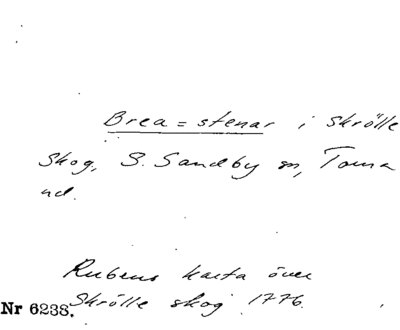 Brea = stenar i Skrölle
Skog, S. Sandby sn, Torna
hd.
Rubens karta över
Skrölle skog 1776.
Nr 6238.